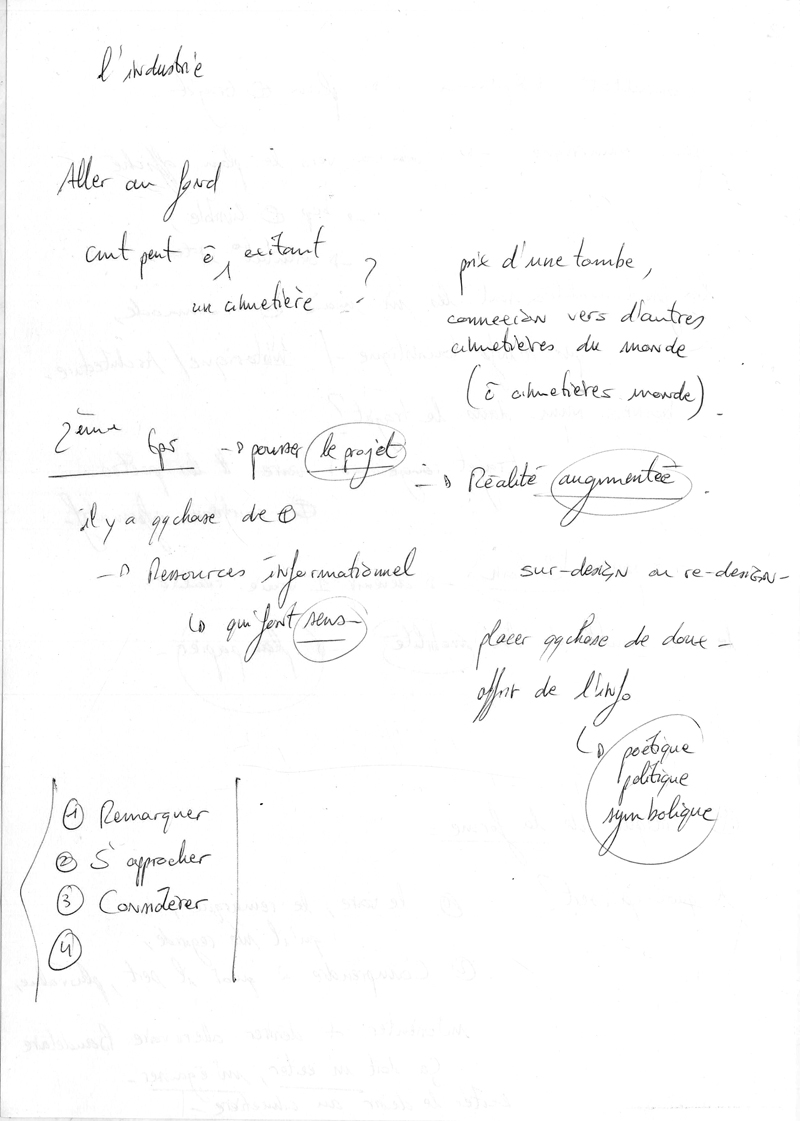 l'industrie
Aller au fond
cmt peut ê, exitant
un cimetière ?
prix d'une tombe,
connexion vers d'autres
cimetières du monde
(ê cimetières monde).
2ème tps → pousser le projet
→ Réalité augmentée.
il y a qqchose de ⊕
→ Ressources informationnel
↳ qui font sens
sur-design ou re-design-
placer qqchose de doux -
offrir de l'info
↳ poétique
politique
symbolique
① Remarquer
② S'approcher
③ Considérer
④